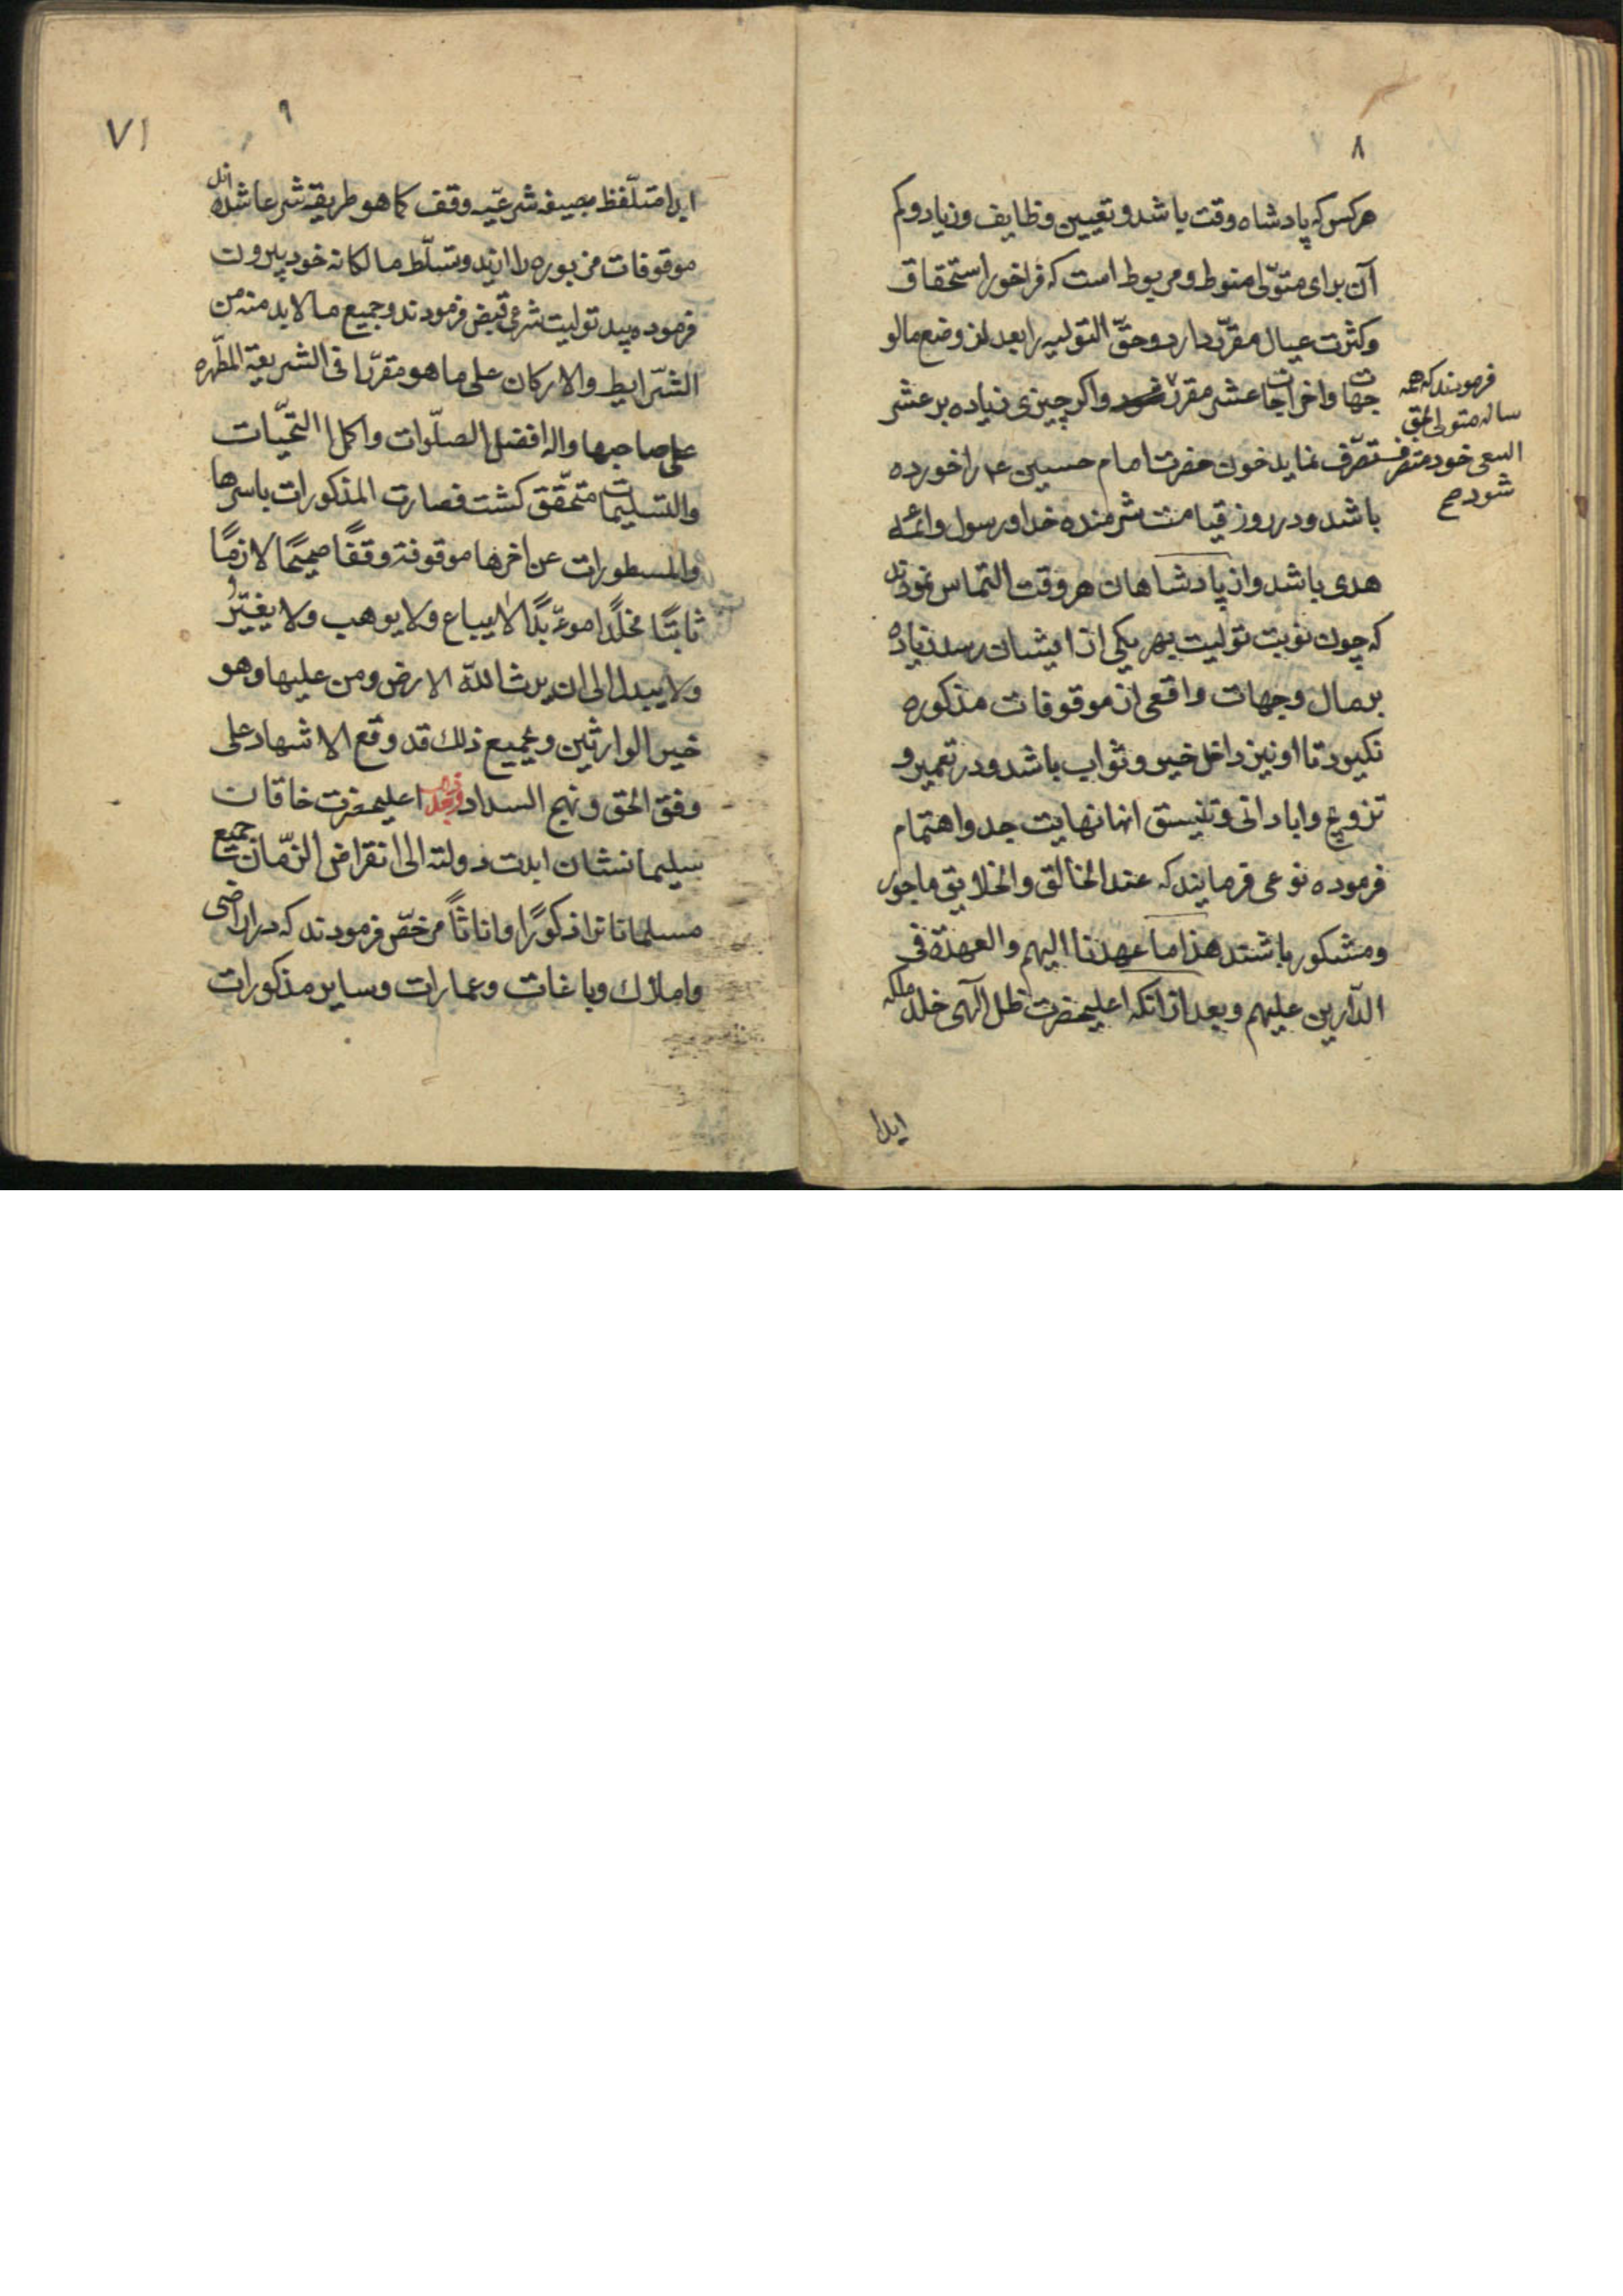 ۸
هرکس که پادشاه وقت باشد و تعیین وظایف و زیاد و کم
آن برای متولّی منوط و مربوط است که فراخور استحقاق
و کثرت عیال مقرّر دارد و حقّ التولیه را بعد از وضع مال و
جهات و اخراجات عشر مقرر و اکر چیزی زیاده بر عشر
تصرّف نماید خون حضرت امام حسین ع را خورده
باشد و در روز قیامت شرمنده خدا و رسول و ائمه
هدی باشد و از پادشاهان هر وقت التماس نمودند
که چون نوبت تولیت بهر یکی از ایشان رسد زیاده
بر مال و جهات واقعی از موقوفات مذکوره
نکیرد تا او نیز داخل خیر و ثواب باشد و در تعمیر و
تزویج و ابادانی و تنیسق انها نهایت جد و اهتمام
فرموده نوعی فرمایند که عند الخالق و الخلایق ماجور
و مشکور باشند هذا ما عهدنا الیهم و العهدة فی
الدّارین علیهم و بعد از انکه اعلیحضرت ظل آلهی خلد ملکه
فرمودند که همه
ساله متولی بحق
السعی خود متصرف
شود صح
ایدا
۹
۷۱
ایدا متلّفظ بصیغه شرعیّه وقف کما هو طریقة شرعا شده اند
موقوفات مزبوره را از ید و تسلّط مالکانه خود بیرون
فرموده بید تولیت شرعی قبض فرمودند و جمیع ما لا بد منه من
الشّرایط و الارکان علی ما هو مقرّرا فی الشریعة المطّهره
علی صاحبها و اله افضل الصلّوات و اکمل التحیّات
و التسلیمات متحقّق کشت فصارت المذکورات باسرها
و المسطورات عن اخرها موقوفة وقفًا صحیحًا لازمًا
ثابتًا مخلّدًا موءبّدًا لا یباع و لا یوهب و لا یغیّر
و لا یبدل الی ان یرث الله الارض و من علیها و هو
خیر الوارثین و بجمیع ذلك قد وقع الاشهاد علی
وفق الحق و نهج السداد اعلیحضرت خاقان
سلیمانشان ابدت دولته الی انقراض الزّمان جمیع
مسلمانانرا ذکورًا و اناثاً مرخّص فرمودند که در اراضی
و املاك و باغات و عمارات و سایر مذکورات